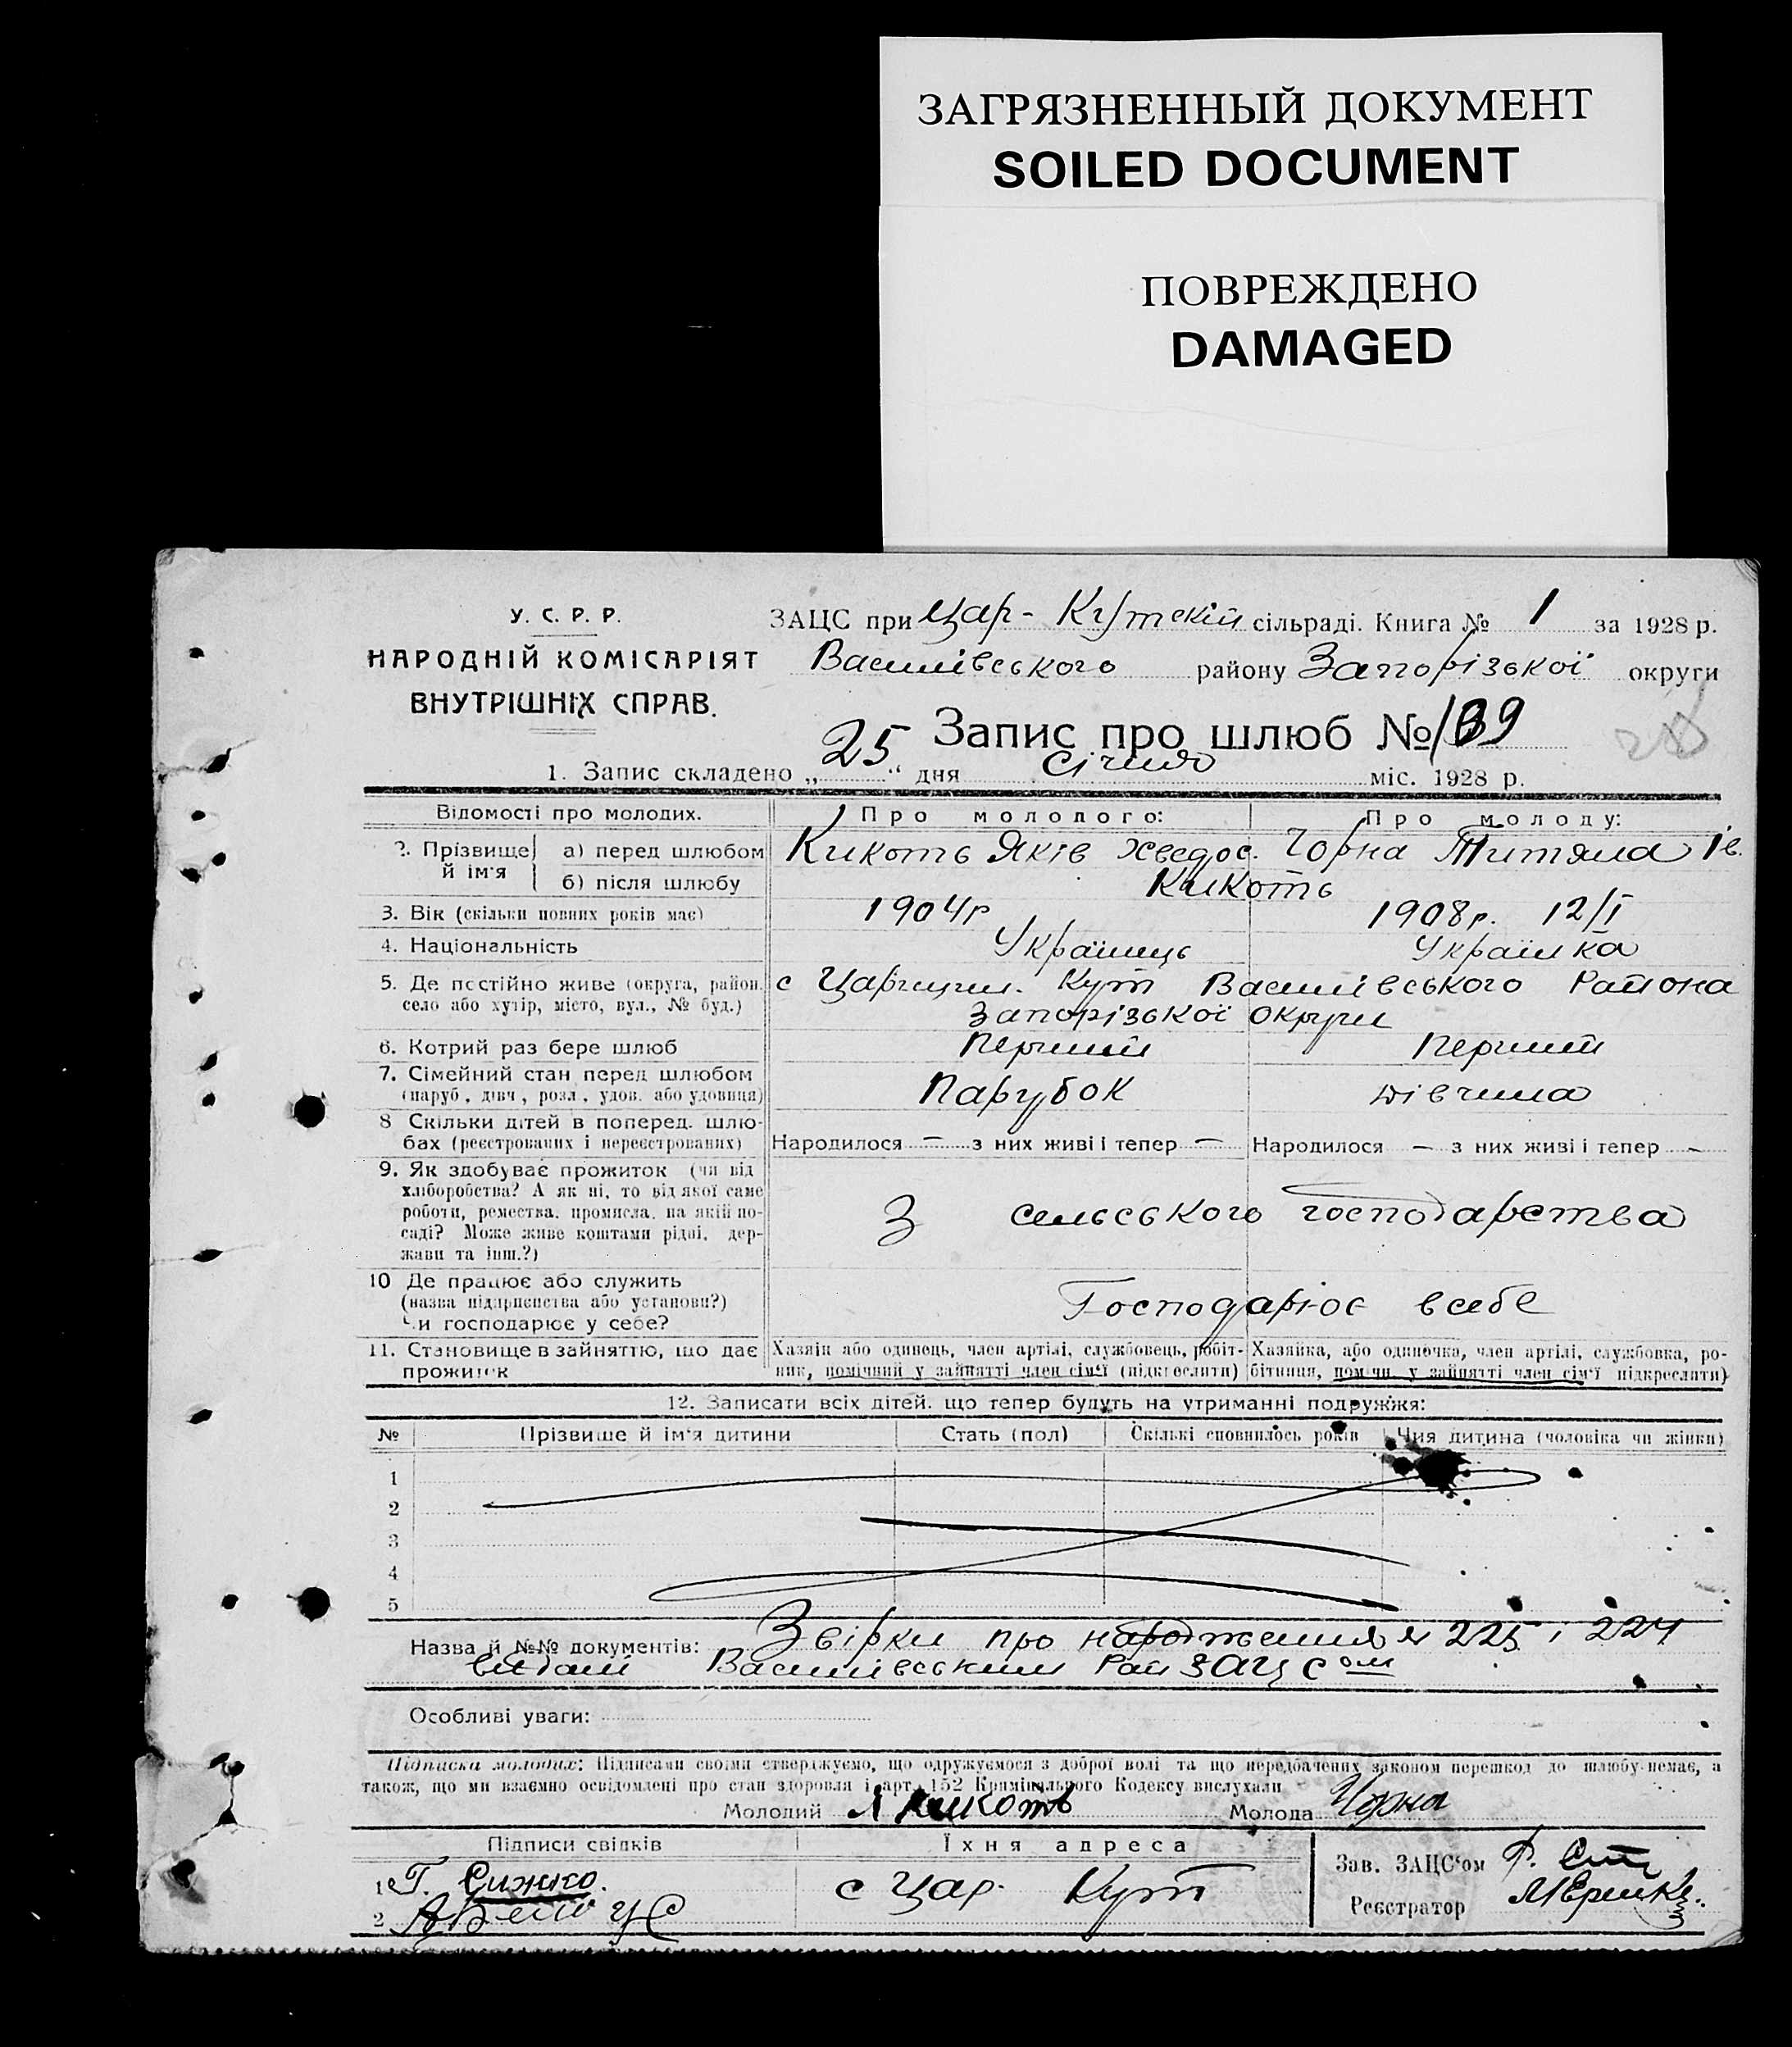 ЗАГРЯЗНЕННЫЙ ДОКУМЕНТ
SOILED DOCUMENT
ПОВРЕЖДЕНО
DAMAGED
У. С. Р. Р.
НАРОДНІЙ КОМІСАРІЯТ
ВНУТРІШНІХ СПРАВ.
ЗАЦС при Цар-Кутскій сільраді. Книга № 1 за 1928 р.
Василівського району Запорізької округи
Запис про шлюб № 39
1. Запис складено „25“ дня Січня міс. 1928 р.
Відомості про молодих. Про молодого: Про молоду:
2. Прізвище й ім'я а) перед шлюбом Кикоть Яків Хведос. Чорна Титяна Ів.
б) після шлюбу Кикоть
3. Вік (скільки повних років має) 1904р 1908р. 12/I
4. Національність Українець Українка
5. Де постійно живе (округа, район, с Царицин. Кут Василівського Района
село або хутір, місто, вул., № буд.) Запорізької Округи
6. Котрий раз бере шлюб Перший Перший
7. Сімейний стан перед шлюбом Парубок Дівчина
(паруб., дівч., розл., удов. або удовиця)
8 Скільки дітей в поперед. шлю-
бах (реєстрованих і нереєстрованих) Народилося — з них живі і тепер — Народилося — з них живі і тепер —
9. Як здобуває прожиток (чи від
хліборобства? А як ні, то від якої саме
роботи, ремества, промисла, на якій по- З сельського господарства
саді? Може живе коштами рідні, дер-
жави та інш.?)
10 Де працює або служить
(назва підприємства або установи?) Господарює всебе
Чи господарює у себе?
11. Становище в зайняттю, що дає Хазяїн або одинець, член артілі, службовець, робіт- Хазяйка, або одиночка, член артілі, службовка, ро-
прожиток ник, помічний у зайнятті член сім'ї (підкреслити) бітниця, помічн. у зайнятті член сім'ї підкреслити)
12. Записати всіх дітей, що тепер будуть на утриманні подружжя:
№ Прізвище й ім'я дитини Стать (пол) Скількі сповнилось років Чия дитина (чоловіка чи жінки)
1
2
3
4
5
Назва й №№ документів: Звірки про народження № 225 і 224
видані Василівським Рай ЗАЦСом
Особливі уваги:
Підписка молодих: Підписами своїми стверджуємо, що одружуємося з доброї волі та що передбачених законом перешкод до шлюбу немає, а
також, що ми взаємно освідомлені про стан здоровля і арт. 152 Кримінального Кодексу вислухали
Молодий Я Кикоть Молода Чорна
Підписи свідків Їхня адреса
1 Г. Сижко. с Цар. Кут Зав. ЗАЦС'ом
2 Реєстратор